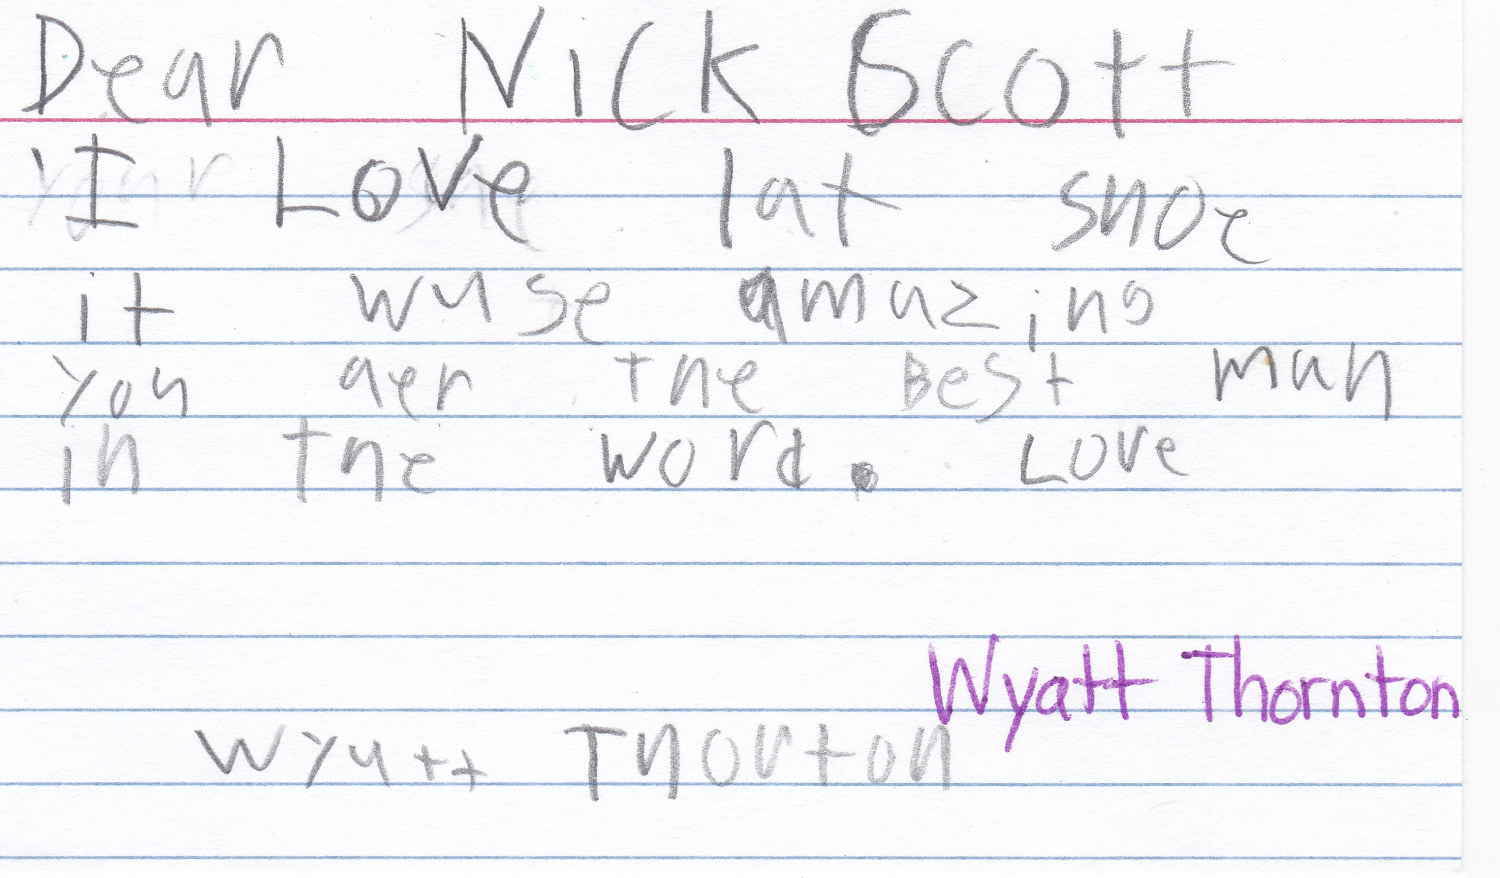 Dear Nick Scott
I Love lat snoe
it wuse amuzing
you aer the Best man
in the word. Love
Wyatt Thornton
Wyatt Thorton